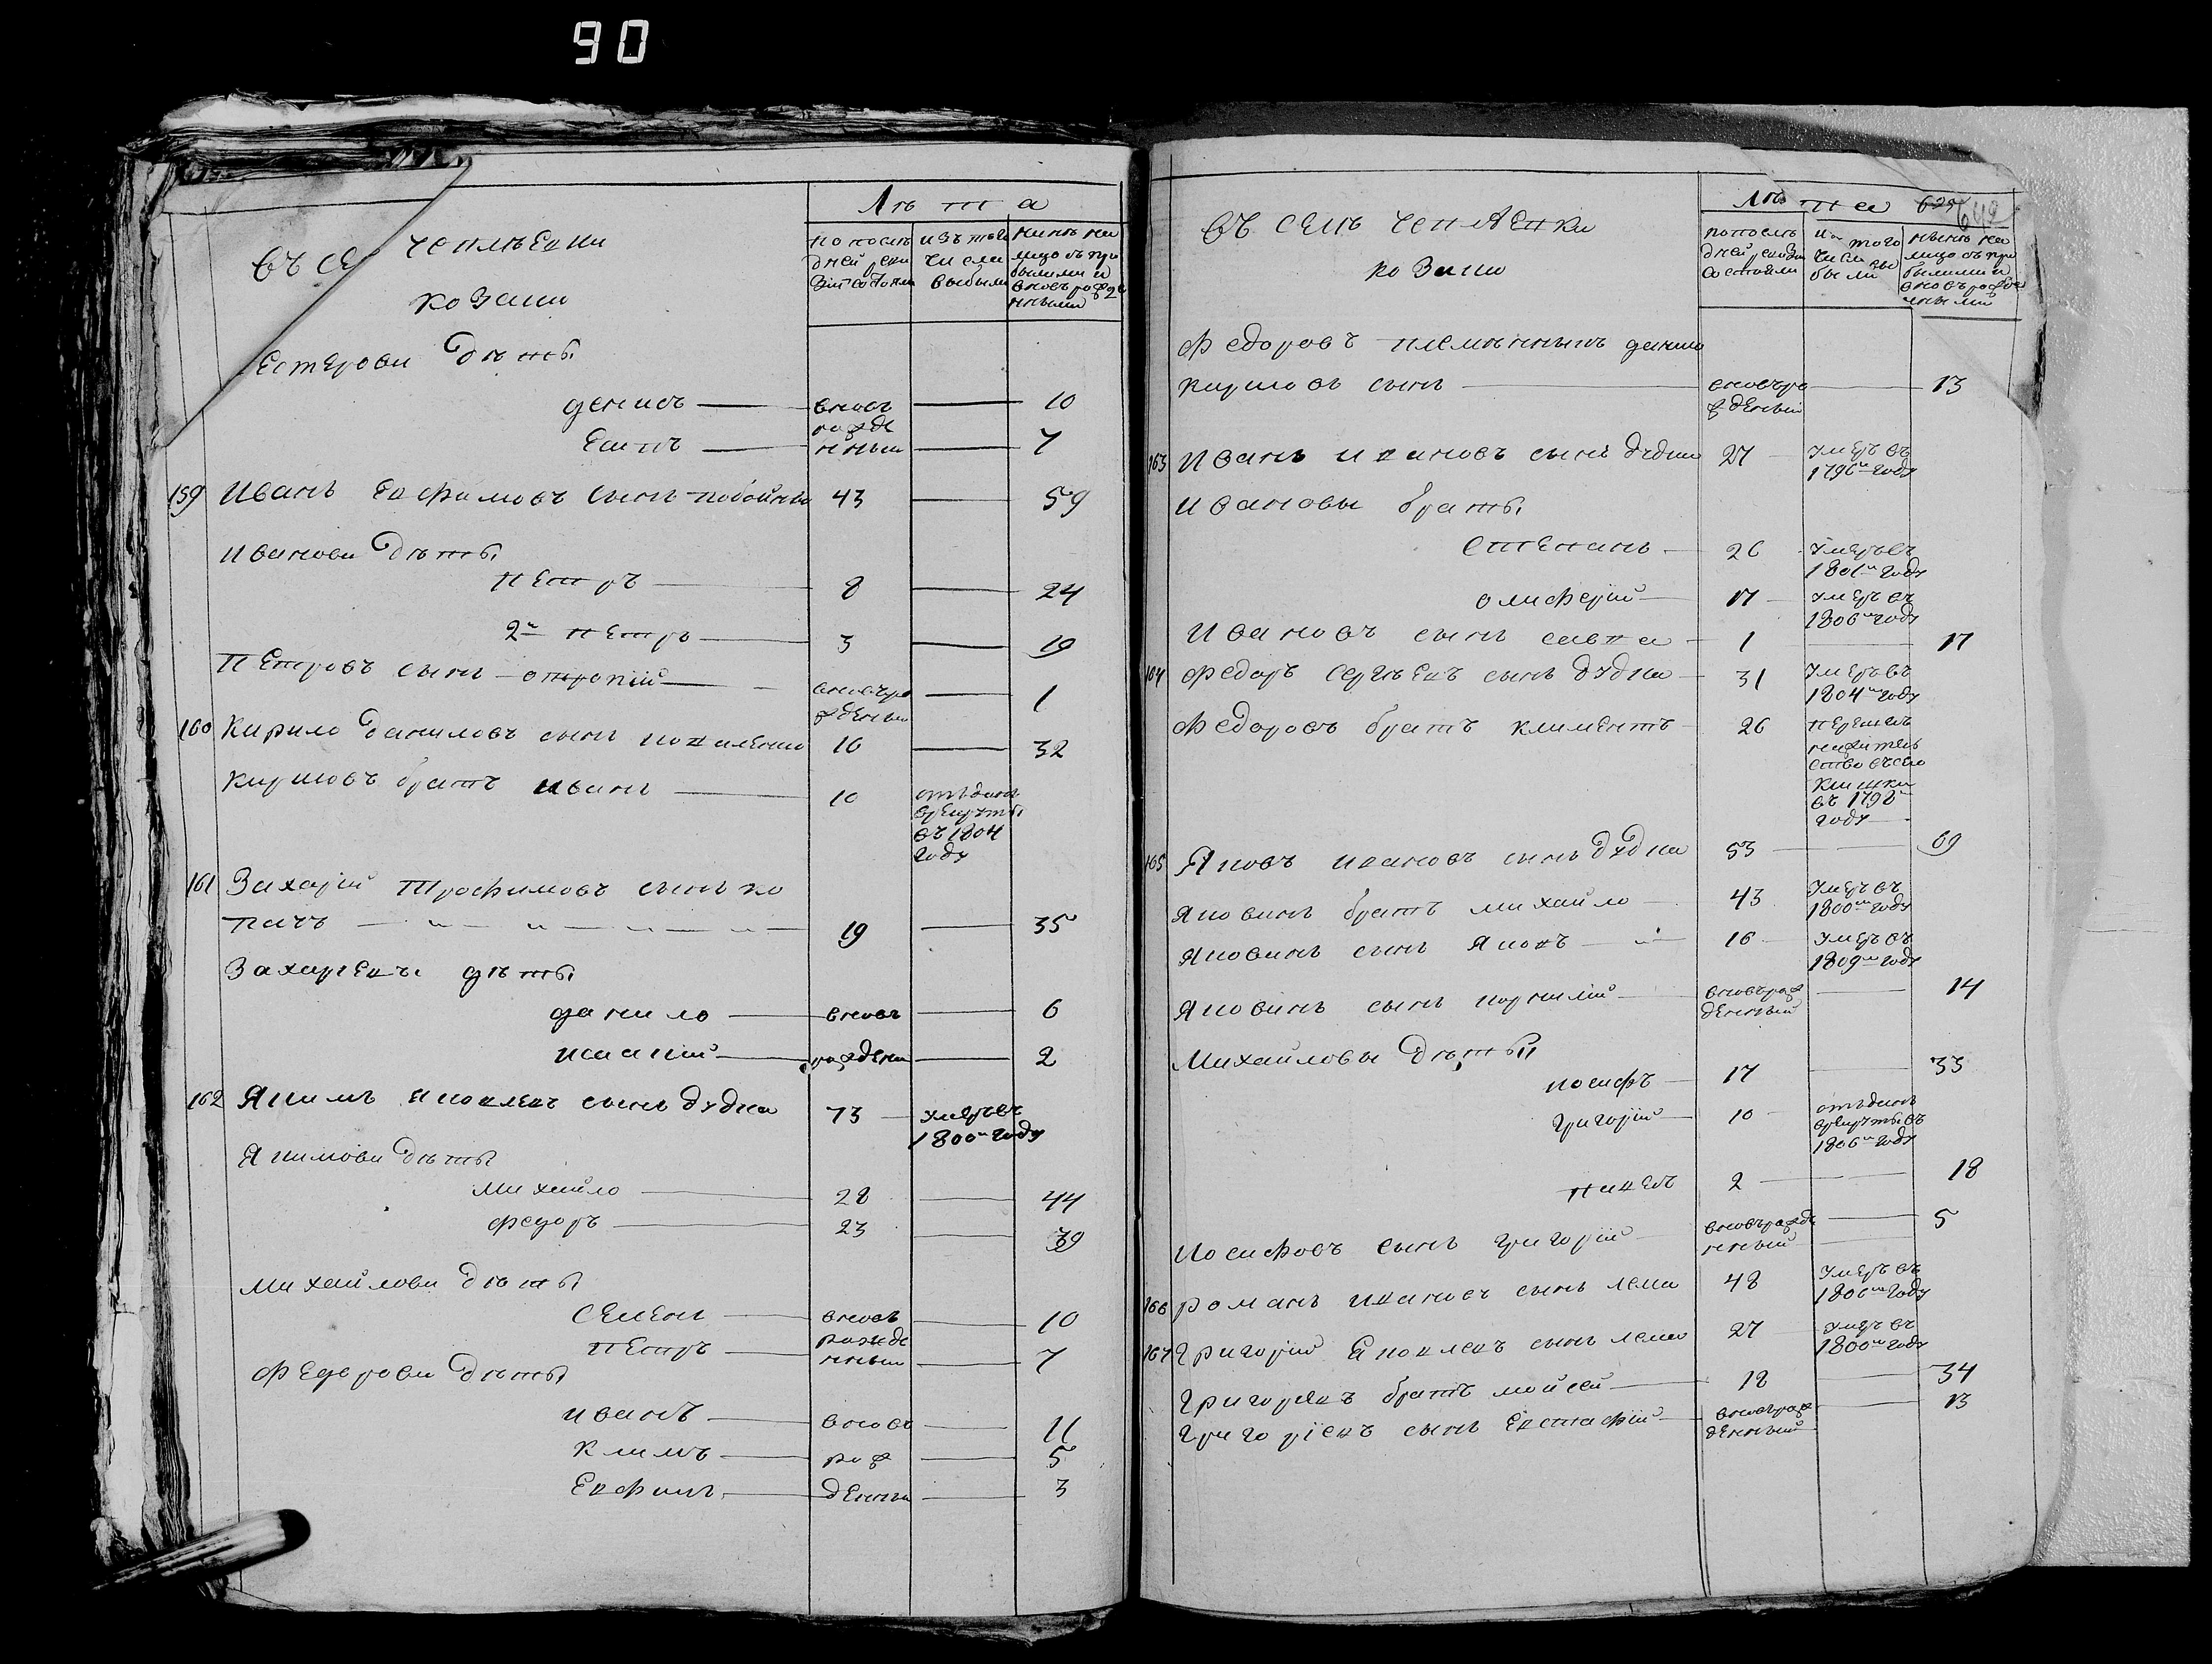 90
Лѣта
въ се чеплѣевки
козаки
по послѣ
дней реви
зіи состояли
изъ того
числа
выбыли
нынѣ на
лицо съ при
былыми и
вновь рожде
нными
естерови дѣты
денисъ — вновь — 10
рожде
нныи — 7
159 Иванъ Евфимовъ сынъ 43 — 59
Иванови дѣты
Петръ — 8 — 24
2й Петръ — 3 — 19
Петровъ сынъ — вновьро — 1
жденыи
160 Кирило Даниловъ сынъ 16 — 32
Кириловъ братъ Иванъ — 10 отъданъ
врекруты
въ 1804
году
161 Захарій Трофимовъ сынъ ко
пачъ — 19 — 35
Захаріевы дѣты
данило — вновь — 6
рождени — 2
162 Якимъ Яковлевъ сынъ дудка 73 — умеръ въ
1800м году
Якимови дѣты
Михайло — 28 — 44
федоръ — 23 — 39
Михайлови дѣты
Семенъ — вновь — 10
Петръ — рожде
нныи — 7
Федорови дѣты
иванъ — вновь — 11
Климъ — рож — 5
Евфимъ — денныи — 3
Лѣта 629 642
въ селѣ чеплѣевки
козаки
по послѣ
дней ревизіи
состояли
изъ того
числа вы
были
нынѣ на
лицо съ при
былыми и
вновь рожде
нными
Федоровъ племѣнникъ данило
Кириловъ сынъ — вновьро — 13
жденый
163 Иванъ Ивановъ сынъ дудка 27 умеръ въ
1796м году
Ивановы браты
Степанъ — 26 умеръ въ
1801м году
олиферій — 17 — умеръ въ
1806м году
Ивановъ сынъ савка — 1 — 17
164 Федоръ Сергѣевъ сынъ дудка — 31 умеръ въ
1804м году
Федоровъ братъ климентъ — 26 перешелъ
на жител
ство въ село
въ 1798м
году
165 Яковъ Ивановъ сынъ дудка 53 — 69
Яковинъ братъ михайло — 43 умеръ въ
1800м году
Яковинъ сынъ Яковъ — 16 — умеръ въ
1809м году
Яковинъ сынъ корнилій — вновьрож — 14
денный
Михайловы дѣты
иосифъ — 17 — 33
григорій — 10 — отъданъ
врекруты въ
1806м году
2 — 18
Иосифовъ сынъ григорій — вновьрожде — 5
нный
166 Романъ Ивановъ сынъ 48 умеръ въ
1806м году
167 Григорій Яковлевъ сынъ 27 умеръ въ
1800м году
Григоріевъ братъ мойсей — 18 — 34
Григоріевъ сынъ Евстафій — вновьрож — 13
денный